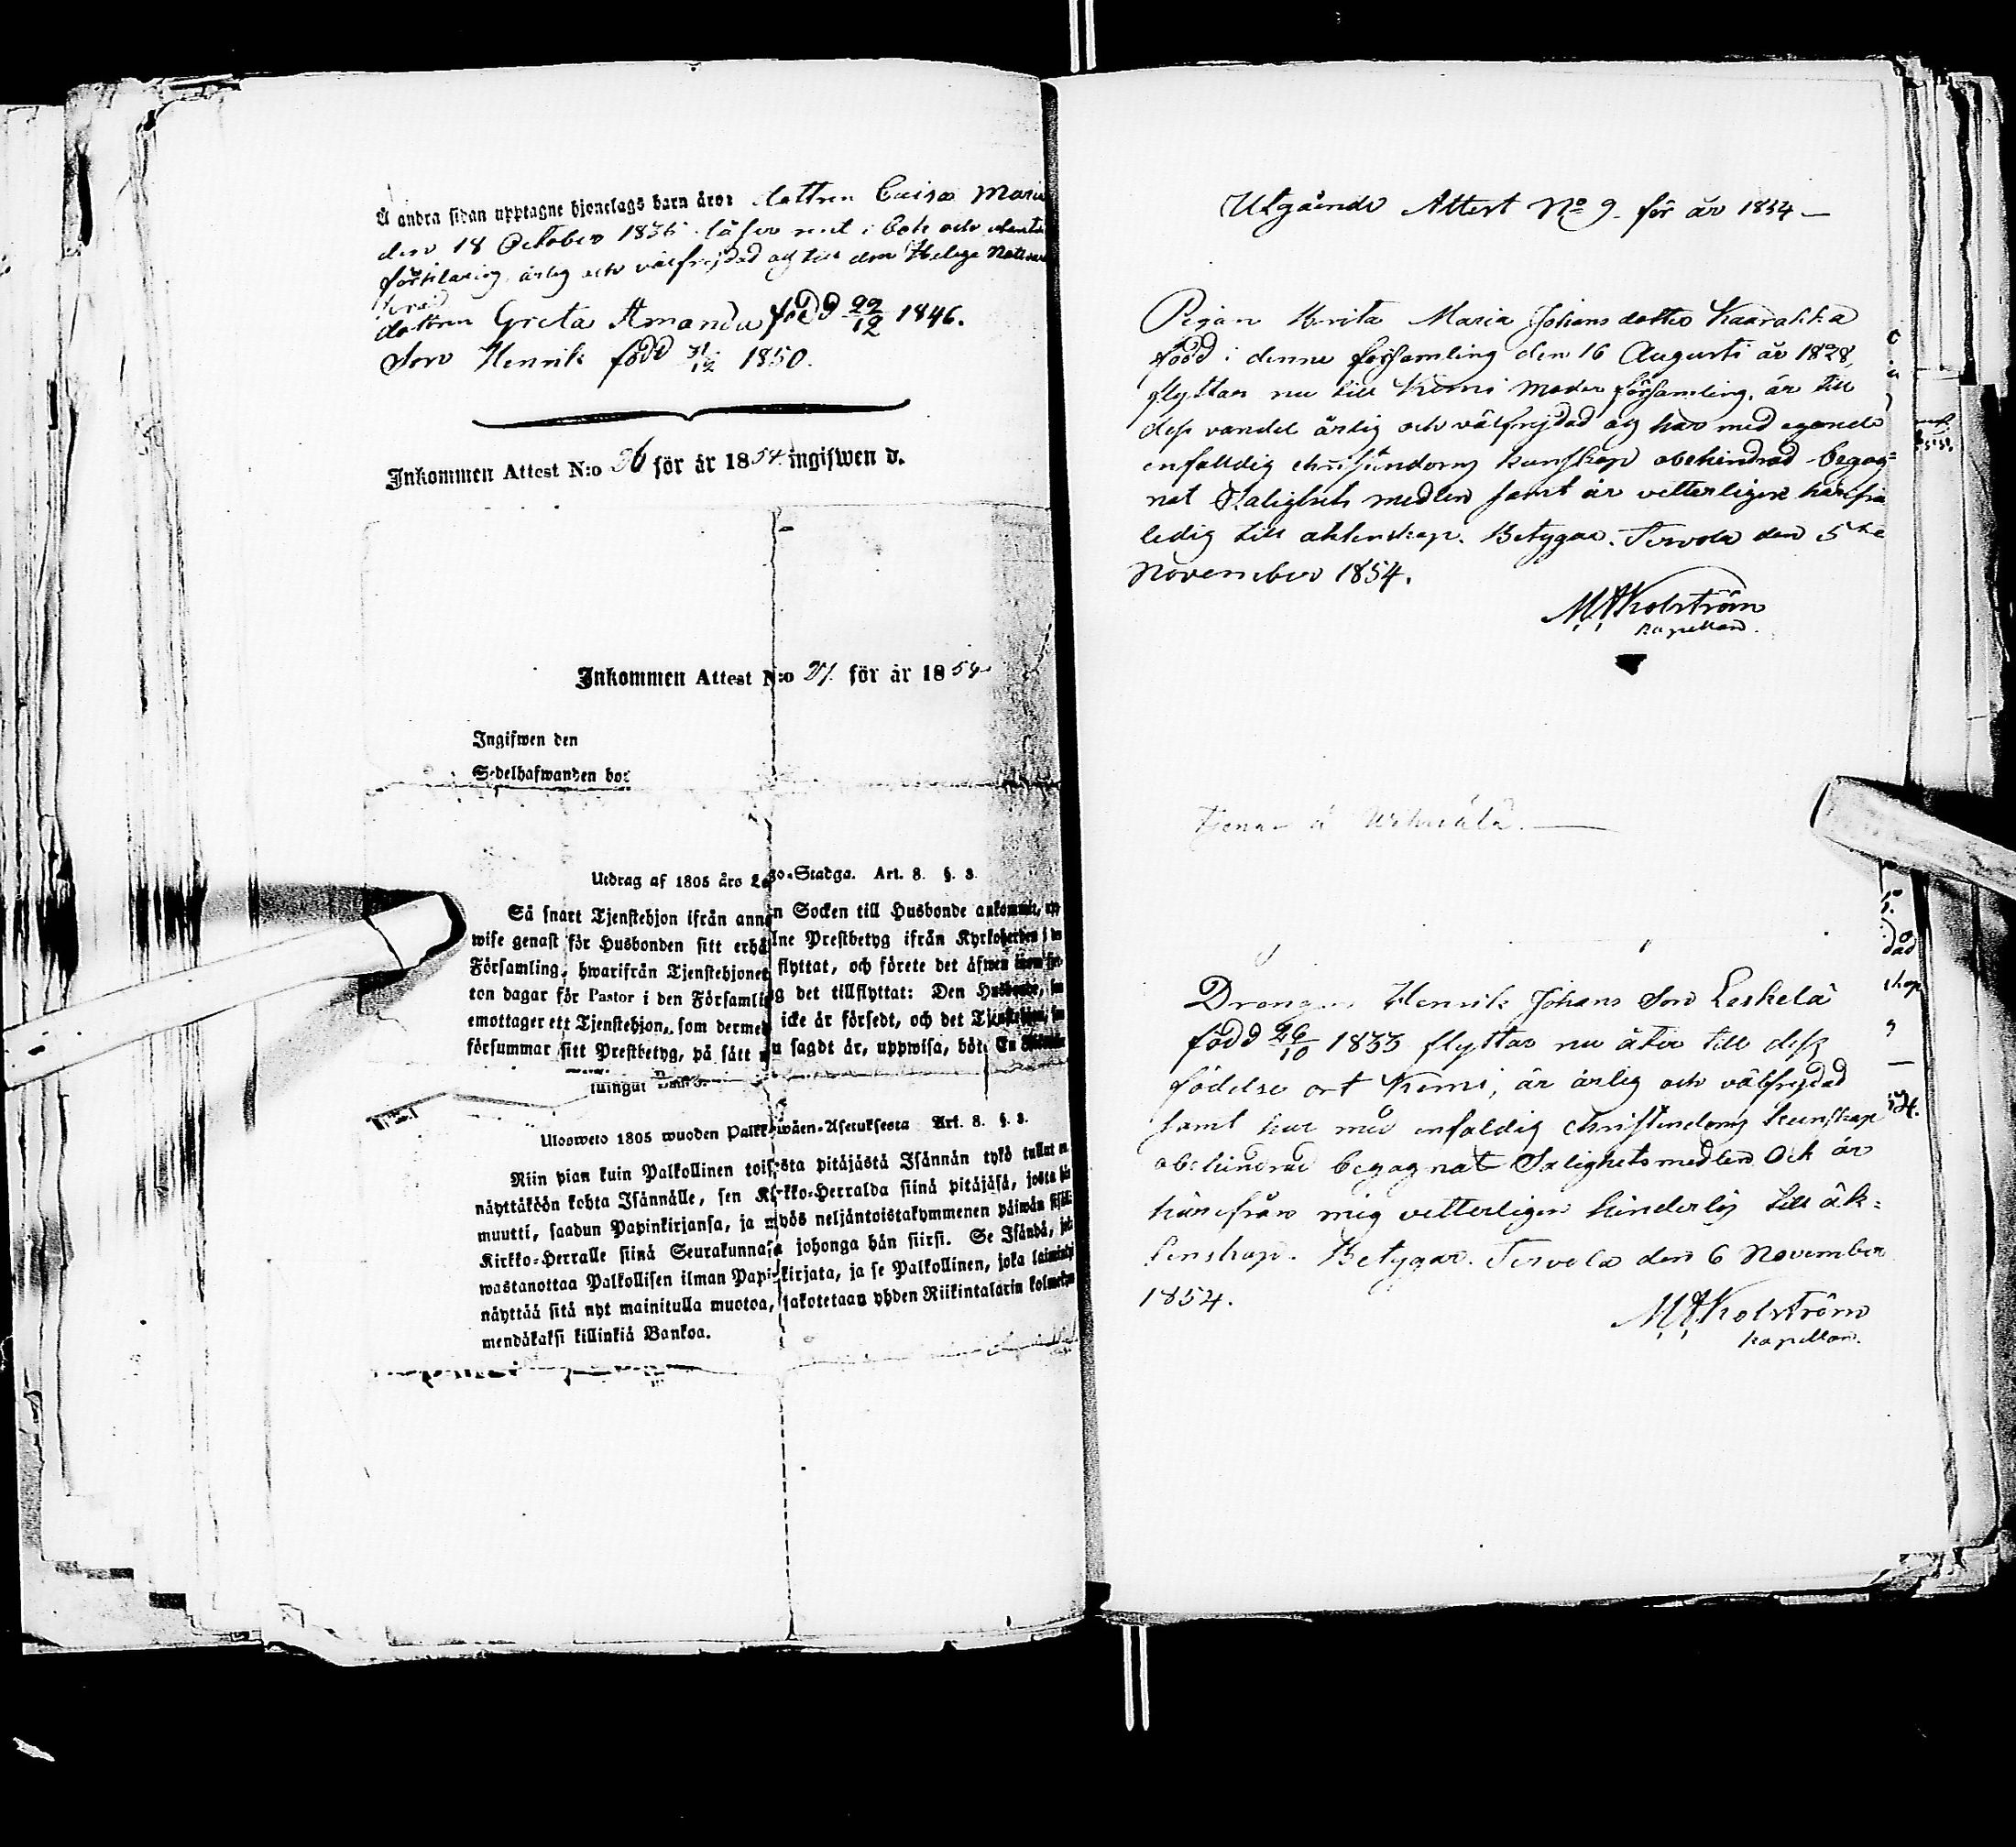 Å andra sidan upptagne hjonelags barn äro: dottren Caisa Maria
den 18 October 1836 läser rent i bok och
förklaring, ärlig och välfrejdad
dottren Greta Amanda född 22/12 1846.
Son Henrik född 31/12 1850.
Inkommen Attest N:o 26 för år 1854. ingifwen d.
Inkommen Attest N:o 27. för år 1854
Ingifwen den
Sedelhafwanden bor
Utdrag af 1805 års Lego-Stadga. Art. 8. §. 3.
Så snart Tjenstehjon ifrån annan Socken till Husbonde ankommit, upp
wise genast för Husbonden sitt erhållne Prestbetyg ifrån Kyrkoherden i den
Församling, hwarifrån Tjenstehjonet flyttat, och förete det äfwen inom fjor
ton dagar för Pastor i den Församling det tillflyttat: Den Husbonde, som
emottager ett Tjenstehjon, som dermed icke är försedt, och det Tjenstehjon, som
försummar sitt Prestbetyg, på sätt nu sagdt är, uppwisa, böte En Riksdaler
Ulosweto 1805 wuoden Palkkawäen-Asetuksesta Art. 8. §. 3.
Niin pian kuin Palkollinen toisesta pitäjästä Isännän tykö tullut on
näyttäköön kohta Isännälle, sen Kirkko-Herralda siinä pitäjäsä, josta hän
muutti, saadun Papinkirjansa, ja myös neljäntoistakymmenen päiwän sisällä
Kirkko-Herralle siinä Seurakunnasa johonga hän siirsi. Se Isändä, joka
wastanottaa Palkollisen ilman Papinkirjata, ja se Palkollinen, joka laiminlyö
näyttää sitä nyt mainitulla muotoa, sakotetaan yhden Riikintalarin kolmekym
mendäkaksi killinkiä Bankoa.
Utgående Attest No 9. för år 1854 —
Pigan Brita Maria Johansdotter Kaarakka
född i denne församling den 16 Augusti år 1828,
flyttar nu till Kemi Moder församling, är till
dess vandel ärlig och välfrejdad och har med egande
enfalldig christendoms kunskap obehindrad begag=
nat Salighets medlen samt är vetterligen härifrån
ledig till äktenskap. Betygar. Tervola den 5te
November 1854.
M. Holström
Kapellan.
Tjenar å
Drängen Henrik Johans Son Leskelä
född 26/10 1833 flyttar nu åter till dess
födelse ort Kemi, är ärlig och välfrejdad
samt har med enfaldig christendoms kunskap
obehindrad begagnat Salighetsmedlen Och är
härifrån mig vetterligen hinderlös till äk=
tenskap. Betygar. Tervola den 6 November
1854.
M. Holström
Kapellan.